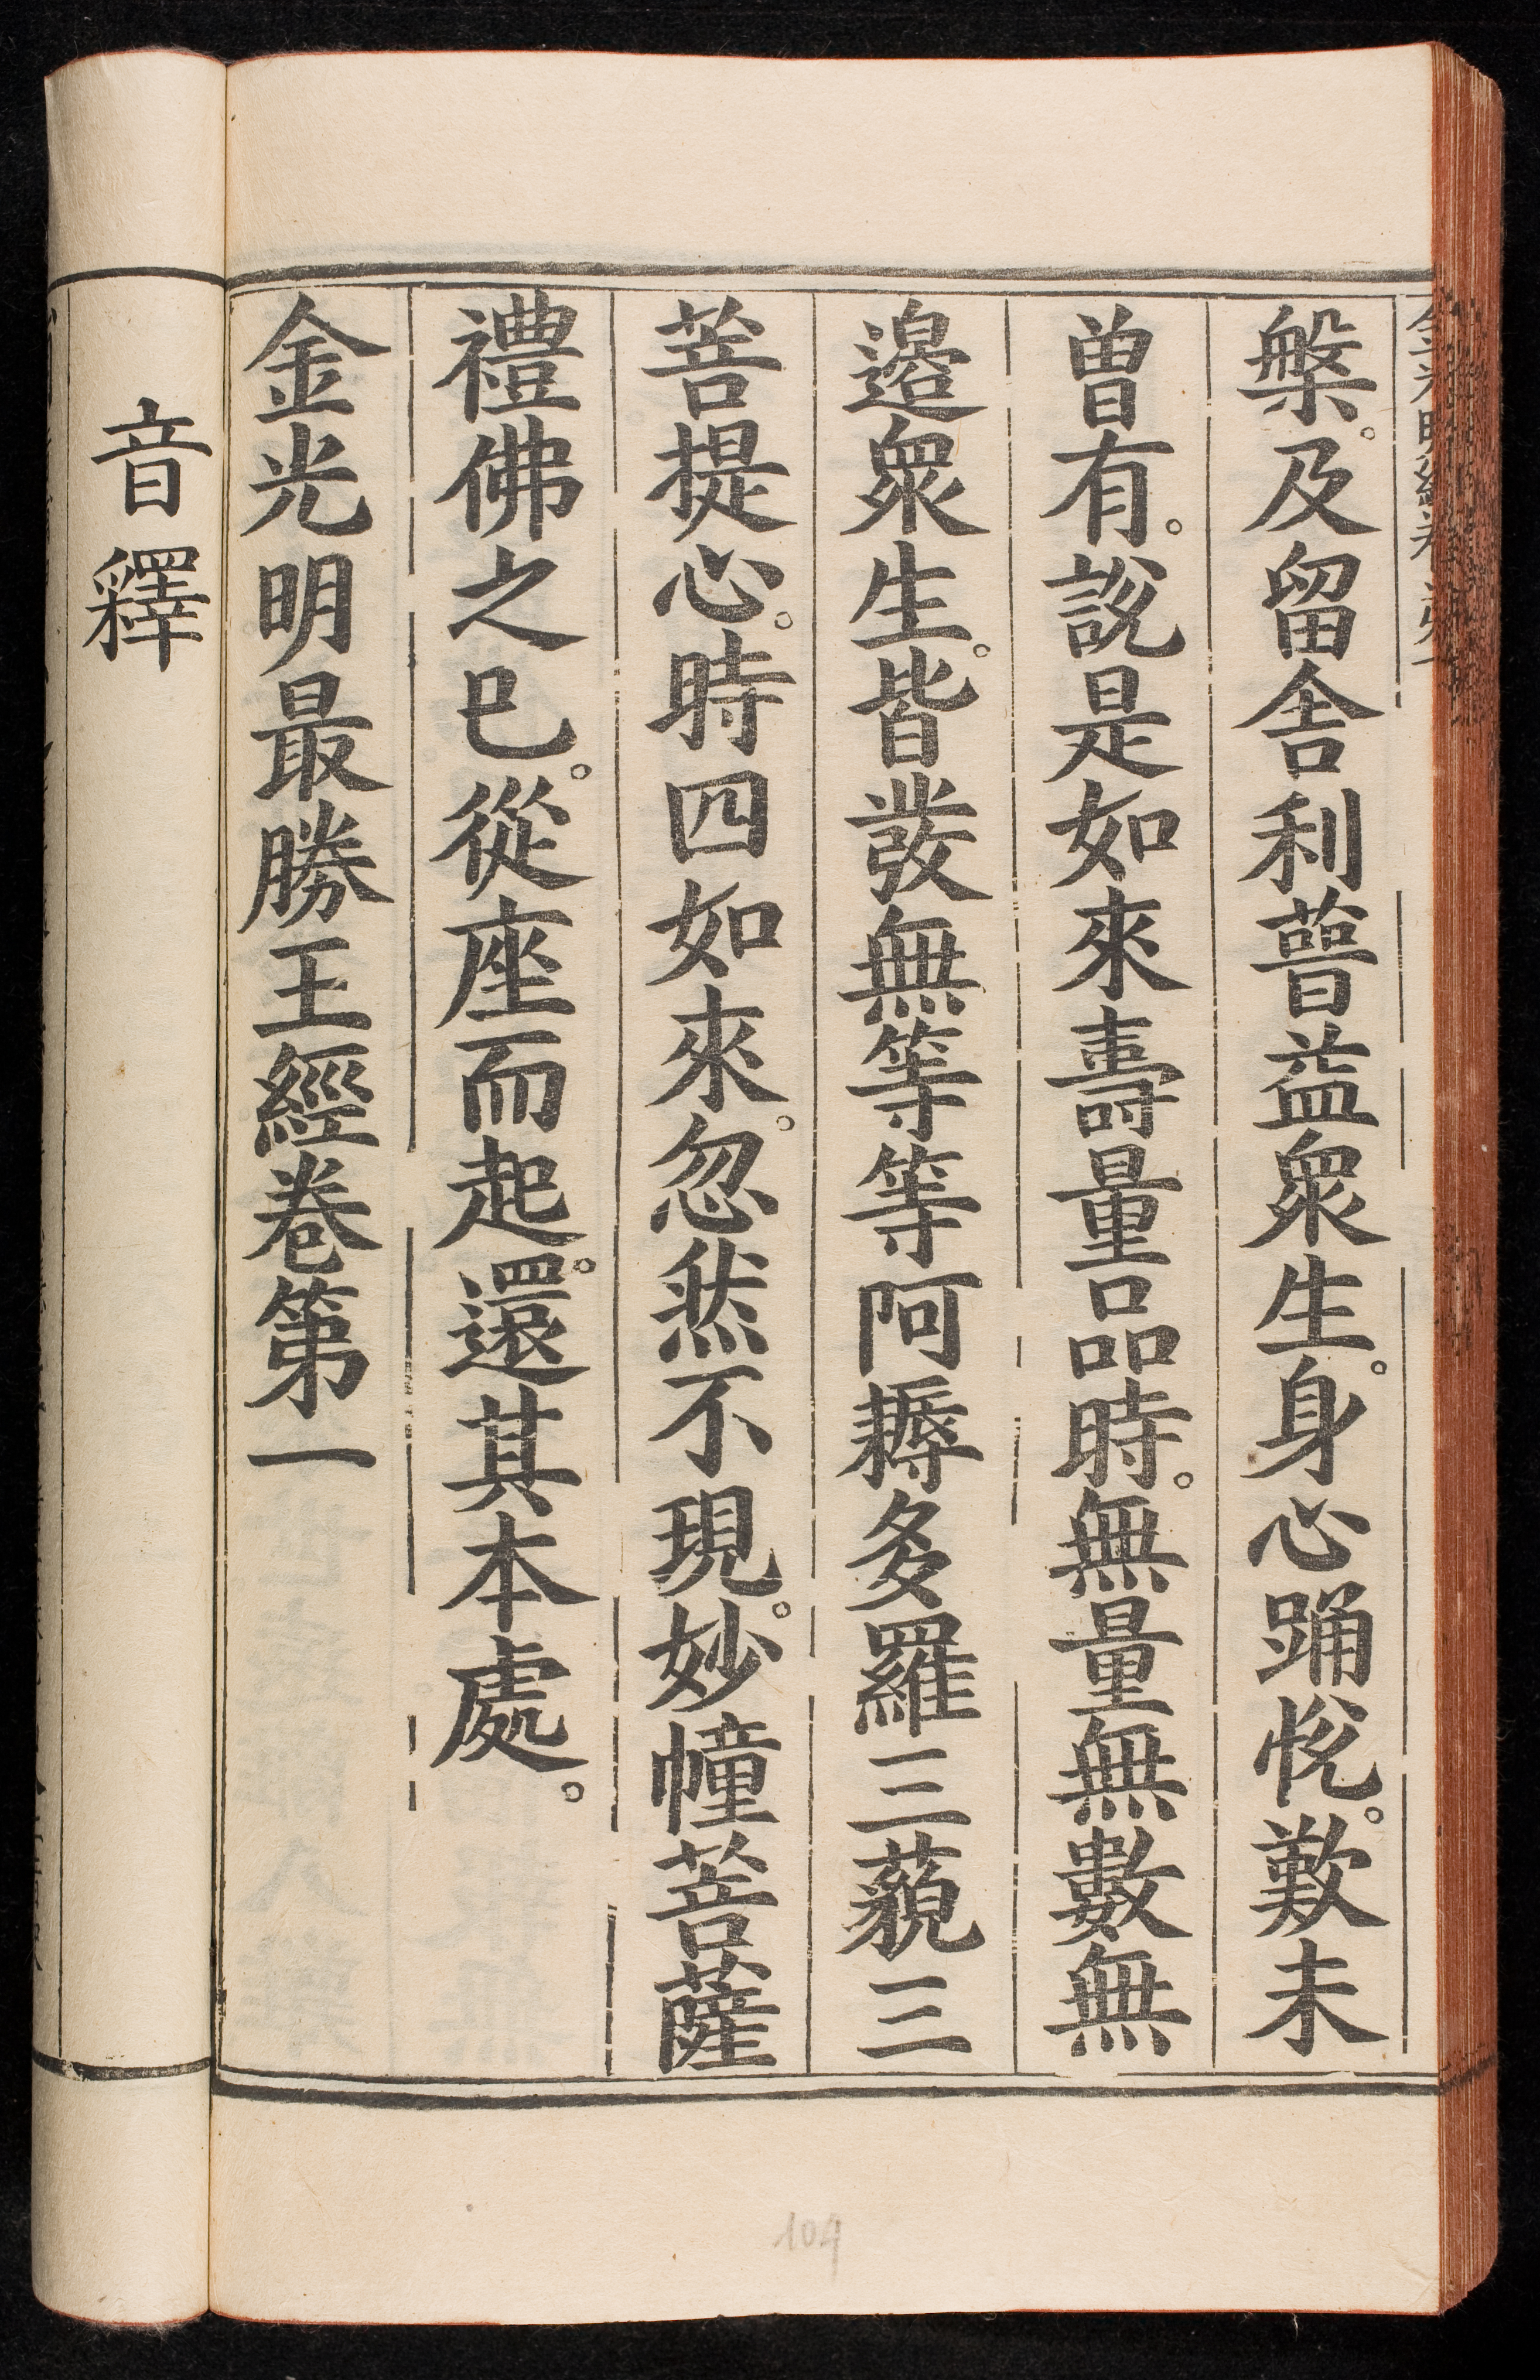 槃。及留舍利。普益眾生。身心踊悅。歎未
曽有。說是如來壽量品時。無量無數無
邉眾生。皆發無等等阿耨多羅三藐三
菩提心。時四如來。忽然不現。妙幢菩薩
禮佛之巳。從座而起。還其本處。
金光明最勝王經卷第一
音釋
104